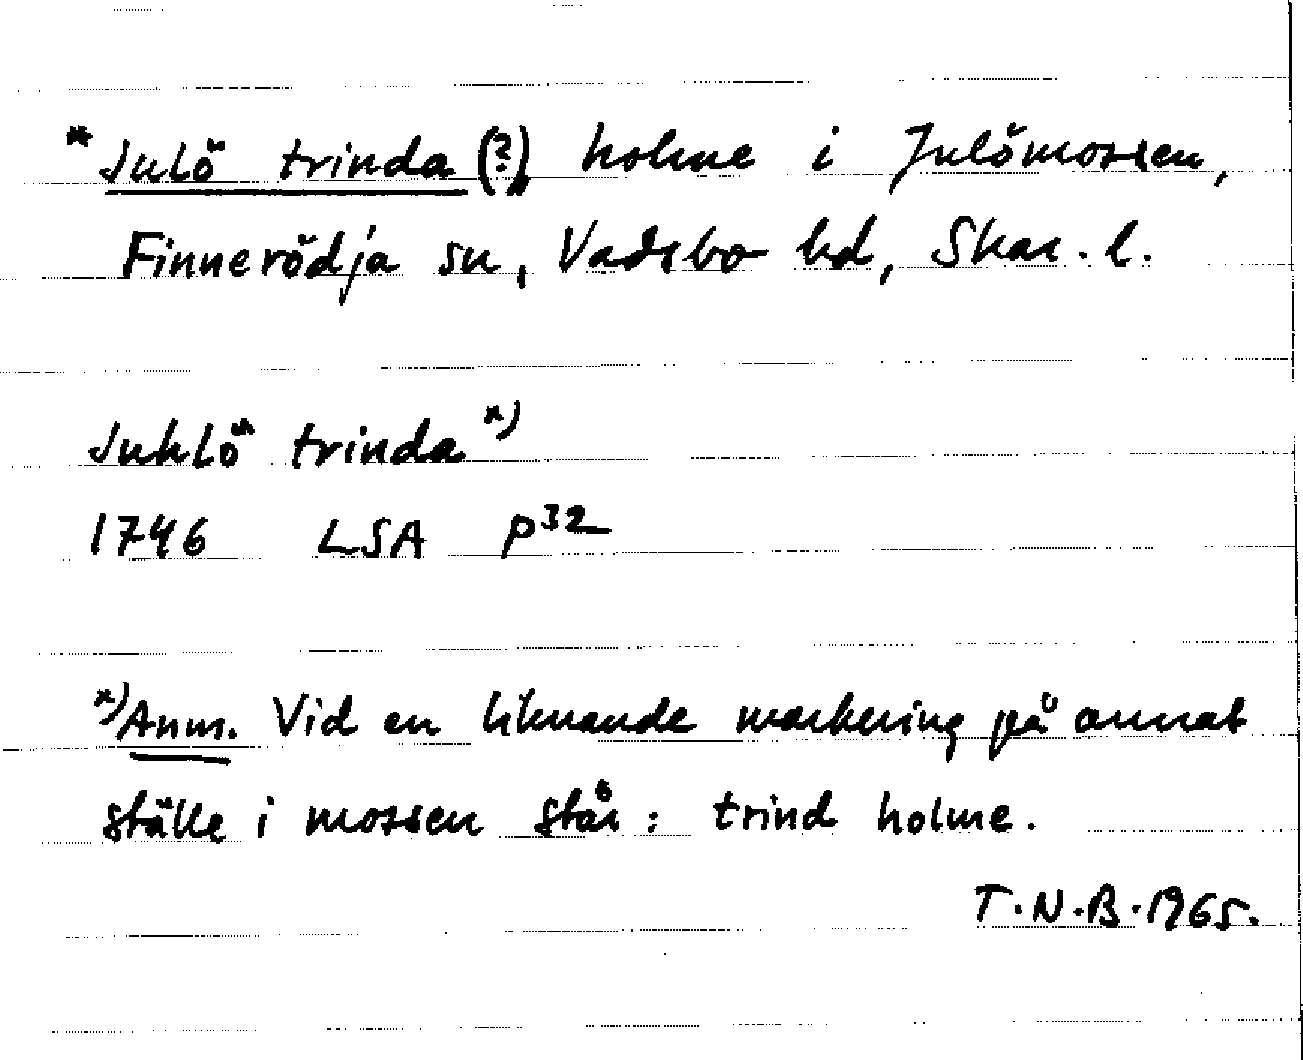 *Julö trinda (?) holme i Julömossen,
Finnerödja sn, Vadsbo hd, Skar. l.
Juhlö trinda x)
1746 LSA P32
x) Anm. Vid en liknande markering på annat
ställe i mossen står: trind holme.
T.N.B. 1965.